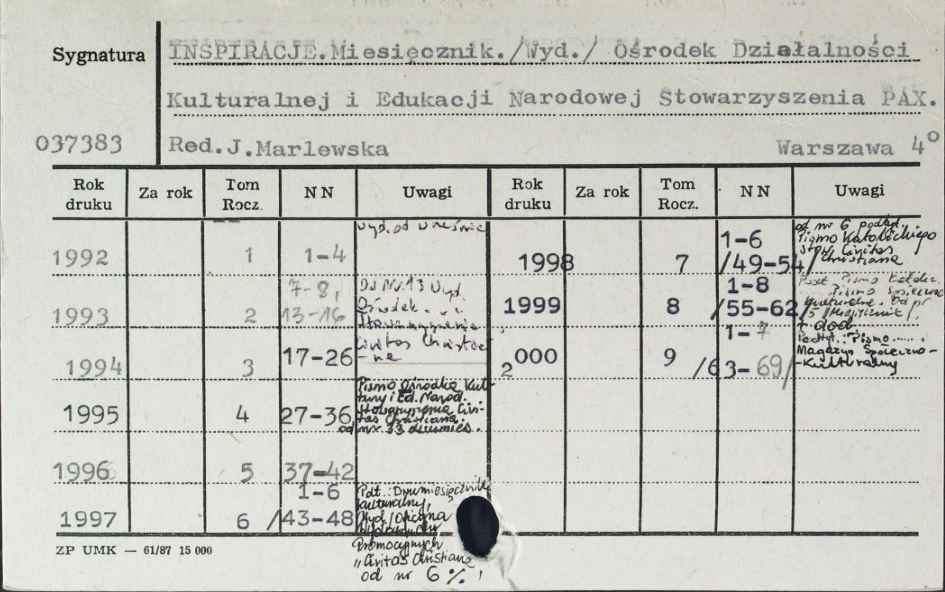 Sygnatura
INSPIRACJE.Miesięcznik./Wyd./ Ośrodek Działalności
Kulturalnej i Edukacji Narodowej Stowarzyszenia PAX.
037383
Red.J.Marlewska Warszawa 4°
Rok druku Za rok Tom Rocz. NN Uwagi Rok druku Za rok Tom Rocz. NN Uwagi
1992 1 1-4 wyd. od września
1993 2 7-8, 13-16 Od Nr 13 wyd. Ośrodek
Stowarzyszenia
Civitas Christiana
1994 3 17-26
1995 4 27-36 Pismo Ośrodka Kultury i Ed. Narod.
Stowarzyszenia Civitas Christiana.
od nr 33 dwumies.
1996 5 37-42
1997 6 1-6 /43-48 Pdt.: Dwumiesięcznik
kulturalny,
Wyd./Oficyna
Promocyjnych
"Civitas Christiana
od nr 6 %
1998 7 1-6 /49-54/ od nr 6 podtyt.
Pismo Katolickiego
Stow. Civitas
Christiana
1999 8 1-8 /55-62/ Pismo
kulturalne. Od nr
5 /Miesięcznik/.
+ dod
2000 9 1-7 /63-69/ Podtyt.: Pismo.....
Magazyn Społeczno-
-Kulturalny
ZP UMK — 61/87 15 000